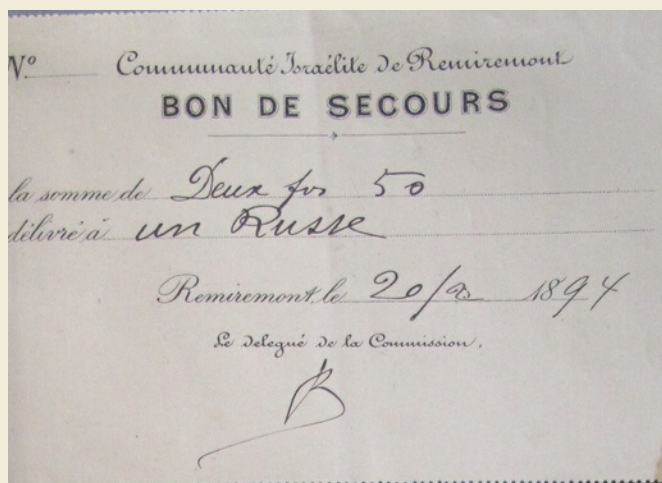 Nº Communauté Israélite de Remiremont
BON DE SECOURS
la somme de Deux frs 50
délivré à un Russe
Remiremont, le 20/ 1894
Le delegué de la Commission,